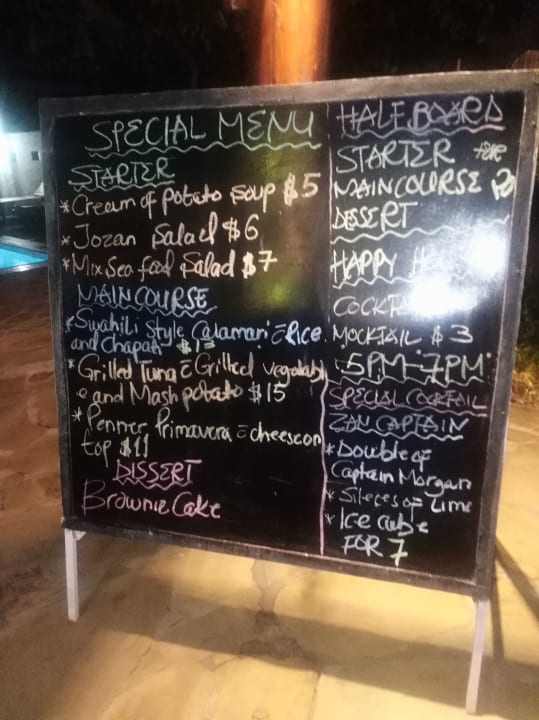 SPECIAL MENU
STARTER
* Cream of Potato Soup $5
* Jozan Salad $6
* Mix Sea food Salad $7
MAIN COURSE
* Swahili Style Calamari c̄ Rice
and Chapati
* Grilled Tuna c̄ Grilled
and Mash potato $15
* Penner Primavera c̄ cheese on
top $11
DISSERT
Brownie Cake
HALF BOARD
STARTER
MAIN COURSE
DESERT
HAPPY
MOCKTAIL $3
5PM-7PM
SPECIAL COCKTAIL
ZAN CAPTAIN
* Double of
Captain Morgan
* Sileces of Lime
* Ice cube
FOR 7